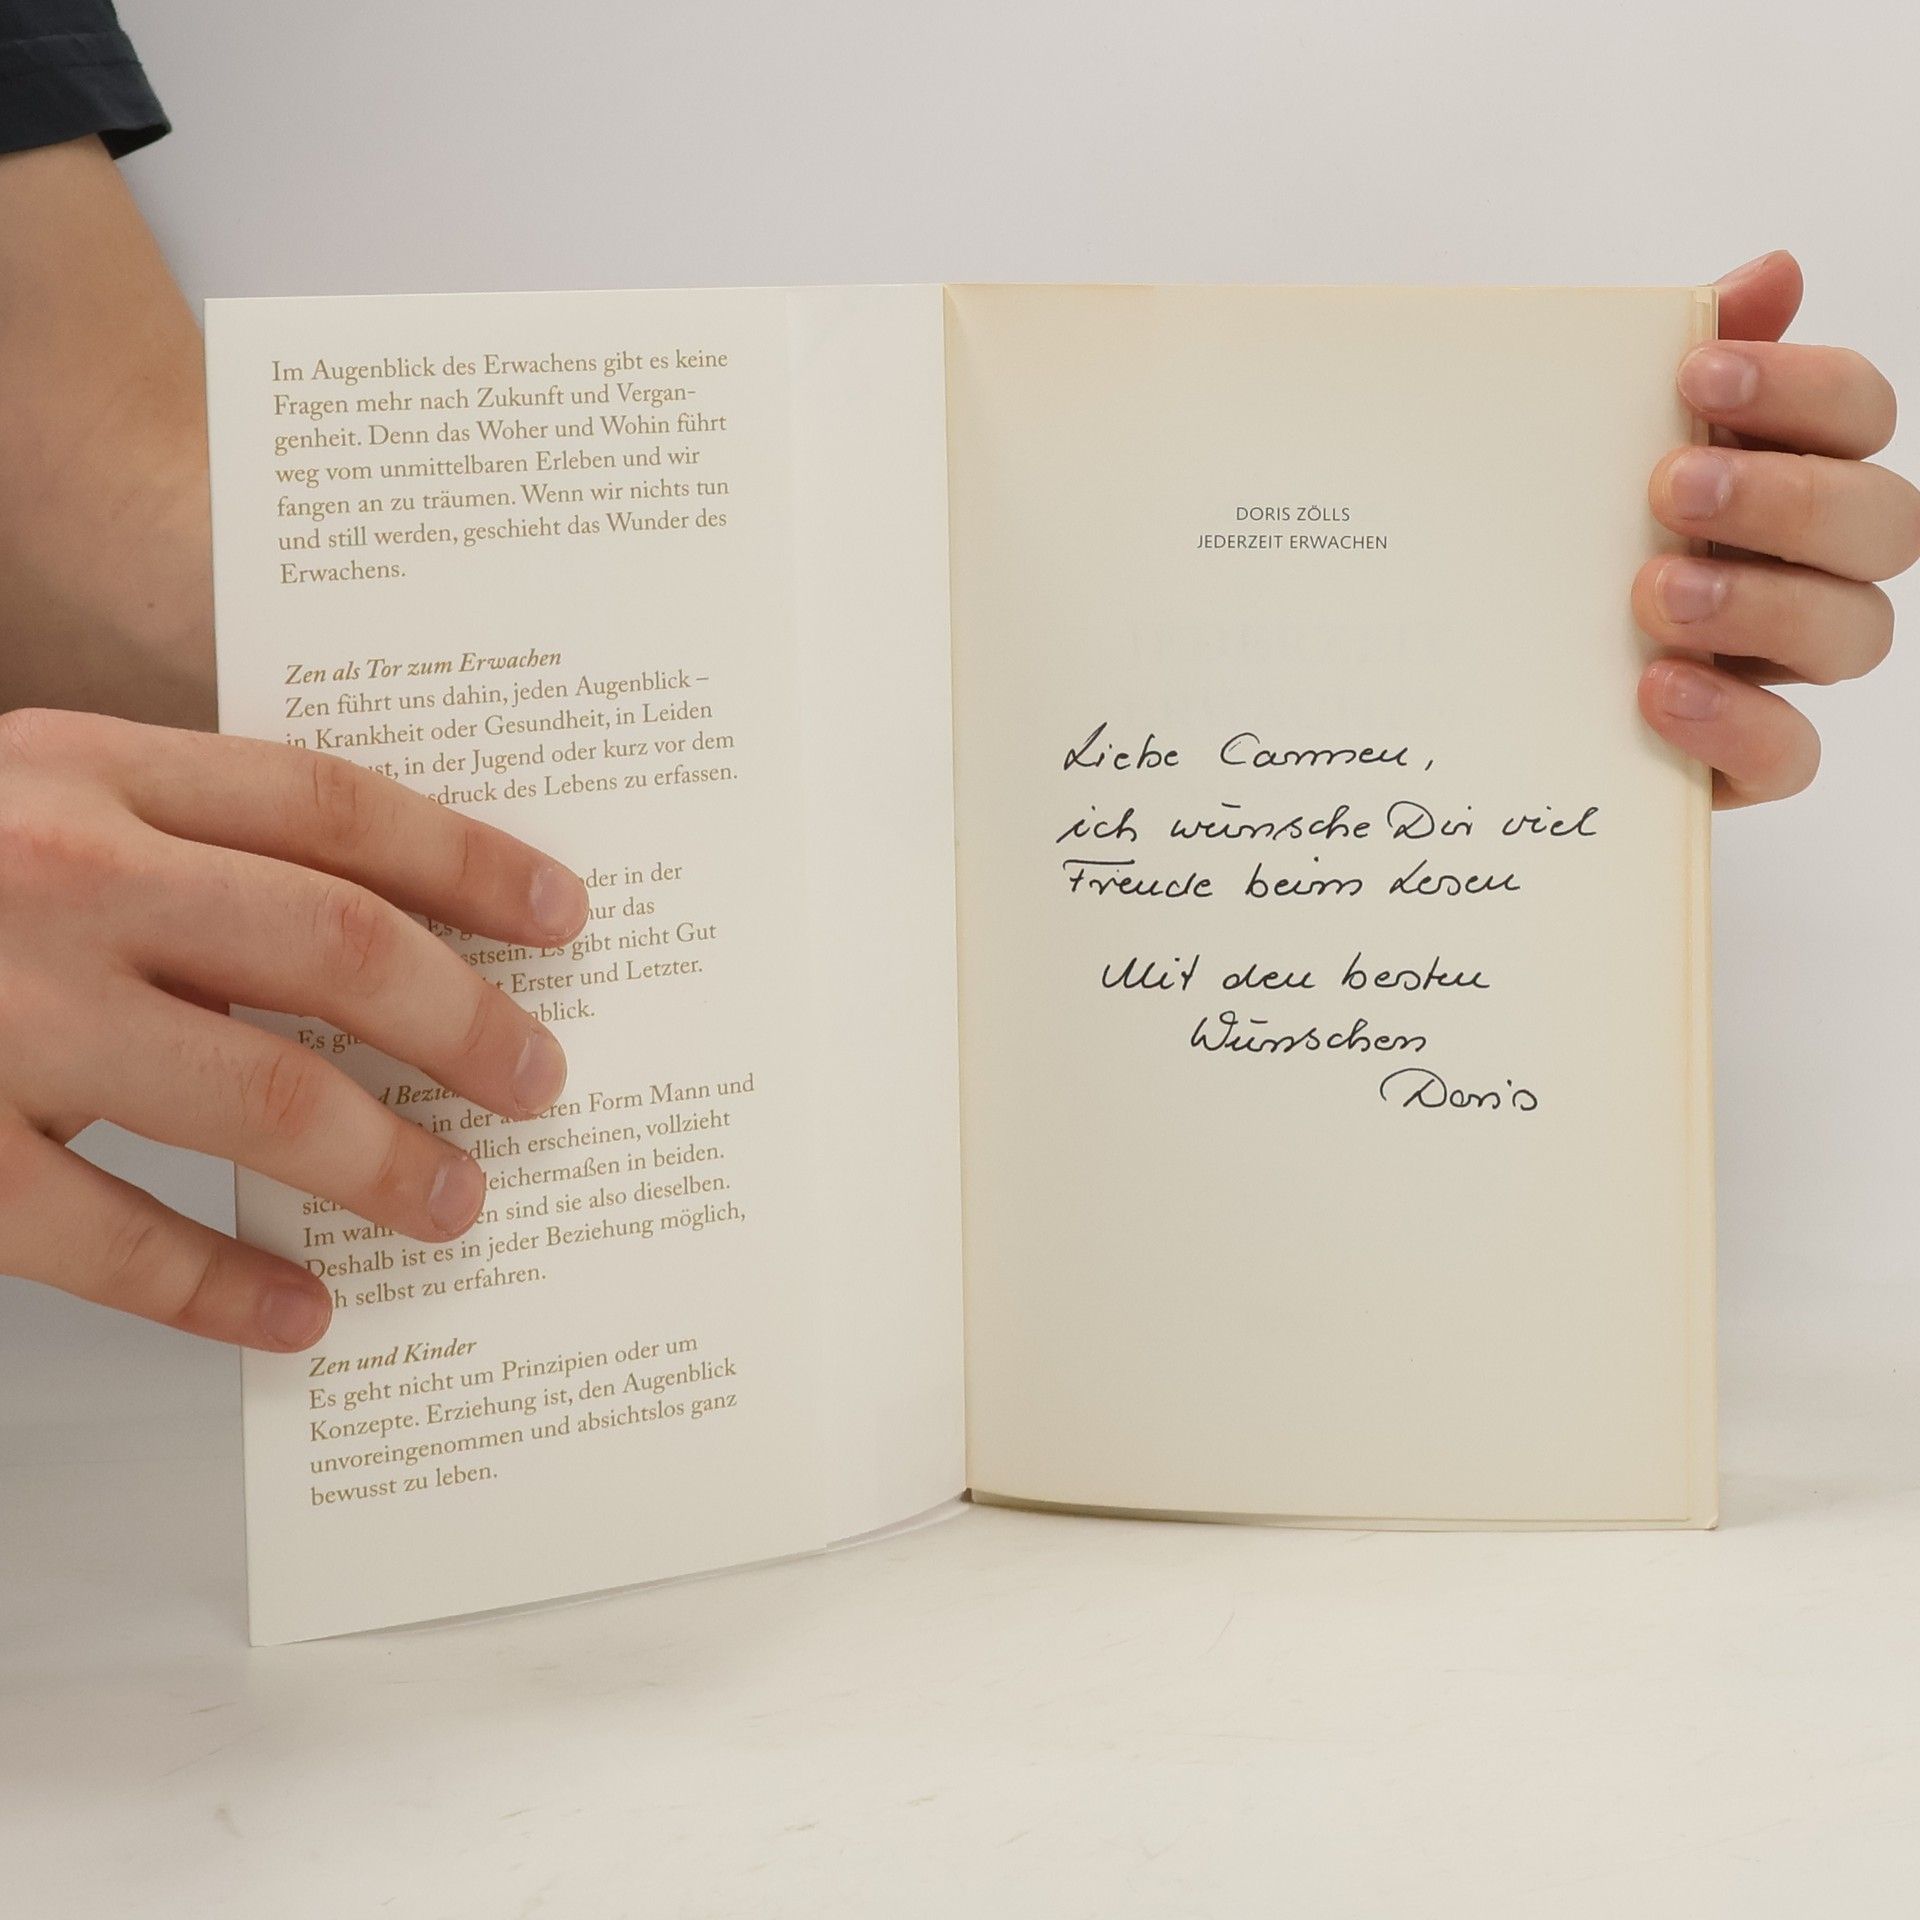 Im Augenblick des Erwachens gibt es keine
Fragen mehr nach Zukunft und Vergan-
genheit. Denn das Woher und Wohin führt
weg vom unmittelbaren Erleben und wir
fangen an zu träumen. Wenn wir nichts tun
und still werden, geschieht das Wunder des
Erwachens.
Zen als Tor zum Erwachen
Zen führt uns dahin, jeden Augenblick –
in Krankheit oder Gesundheit, in Leiden
in der Jugend oder kurz vor dem
des Lebens zu erfassen.
in der
nur das
Es gibt nicht Gut
Erster und Letzter.
Es
in der äußeren Form Mann und
erscheinen, vollzieht
gleichermaßen in beiden.
sind sie also dieselben.
Deshalb ist es in jeder Beziehung möglich,
selbst zu erfahren.
Zen und Kinder
Es geht nicht um Prinzipien oder um
Konzepte. Erziehung ist, den Augenblick
unvoreingenommen und absichtslos ganz
bewusst zu leben.
DORIS ZÖLLS
JEDERZEIT ERWACHEN
Liebe Carmen,
ich wünsche Dir viel
Freude beim Lesen
Mit den besten
Wünschen
Doris